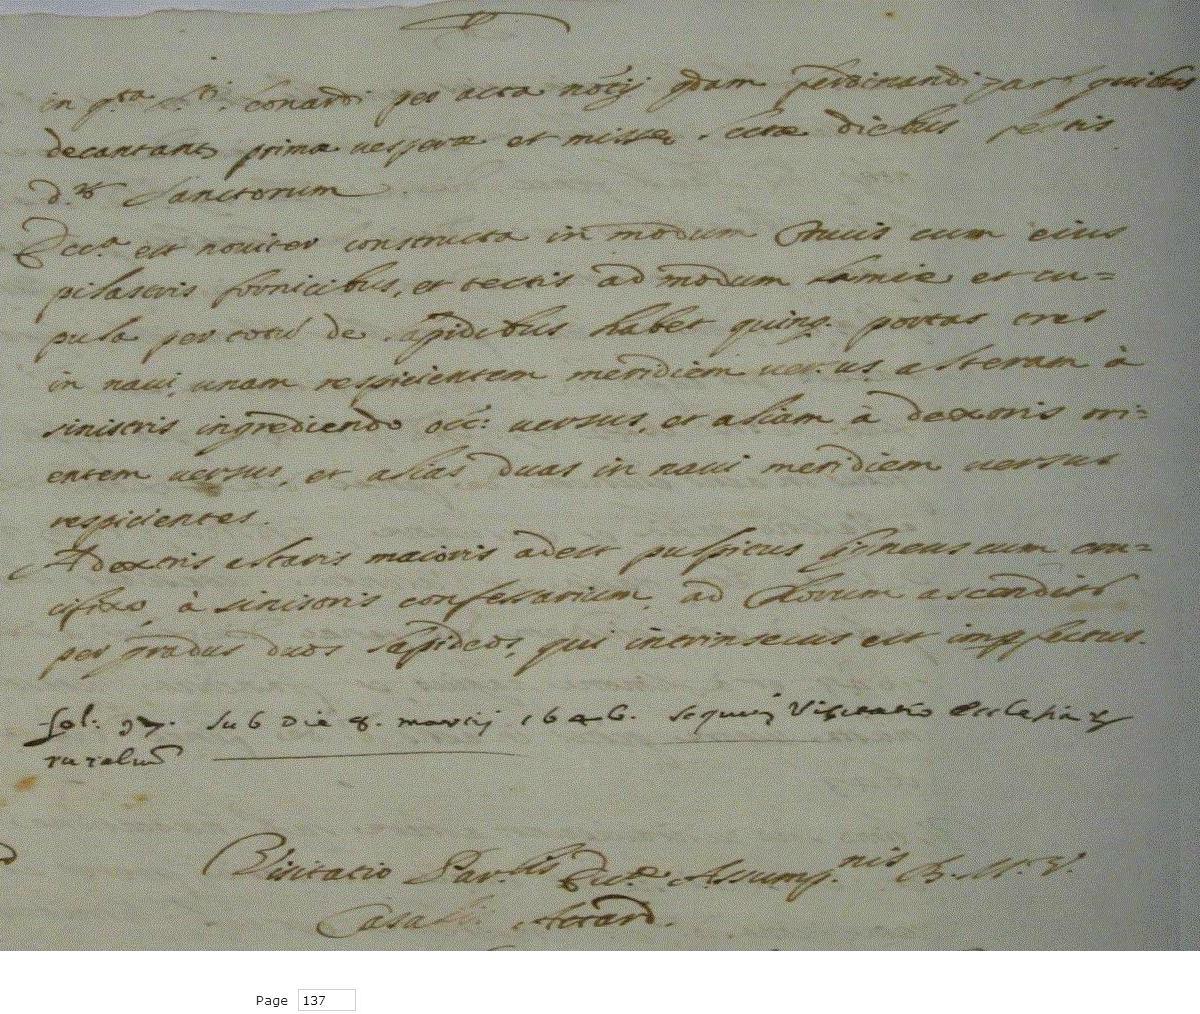 in p.ta conardi per acta notij qdam ferdinandi quibus
decantant primæ uesperæ et missæ lectæ dictus festis
d. Sanctorum
Ecc.a est nouiter constructa in modum Crucis cum eius
pilastris fornicibus, et tectis ad modum lamie et cu=
pula per totu de lapidibus habet quinq. portas tres
in naui, unam respicientem meridiem uersus, alteram à
sinistris ingrediendo occ: uersus, et aliam à dextris ori=
entem uersus, et alias duas in naui meridiem uersus
respicientes.
A dextris altaris maioris adest pulpitus ligneus cum cru=
cifixo, à sinistris confessarium, ad Chorum ascenditr
per gradus duos lapideos, qui intrinsecus est impfectus.
fol: 97. sub die 8. martij 1646. sequi Visitatio Ecclesia
ruraliu
Visitatio Par.lis Ecc.æ Assump.nis B. M. V.
Casalis Attard.
Page 137